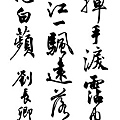 揮手淚霑巾
江一颿遠落
白蘋 劉長卿